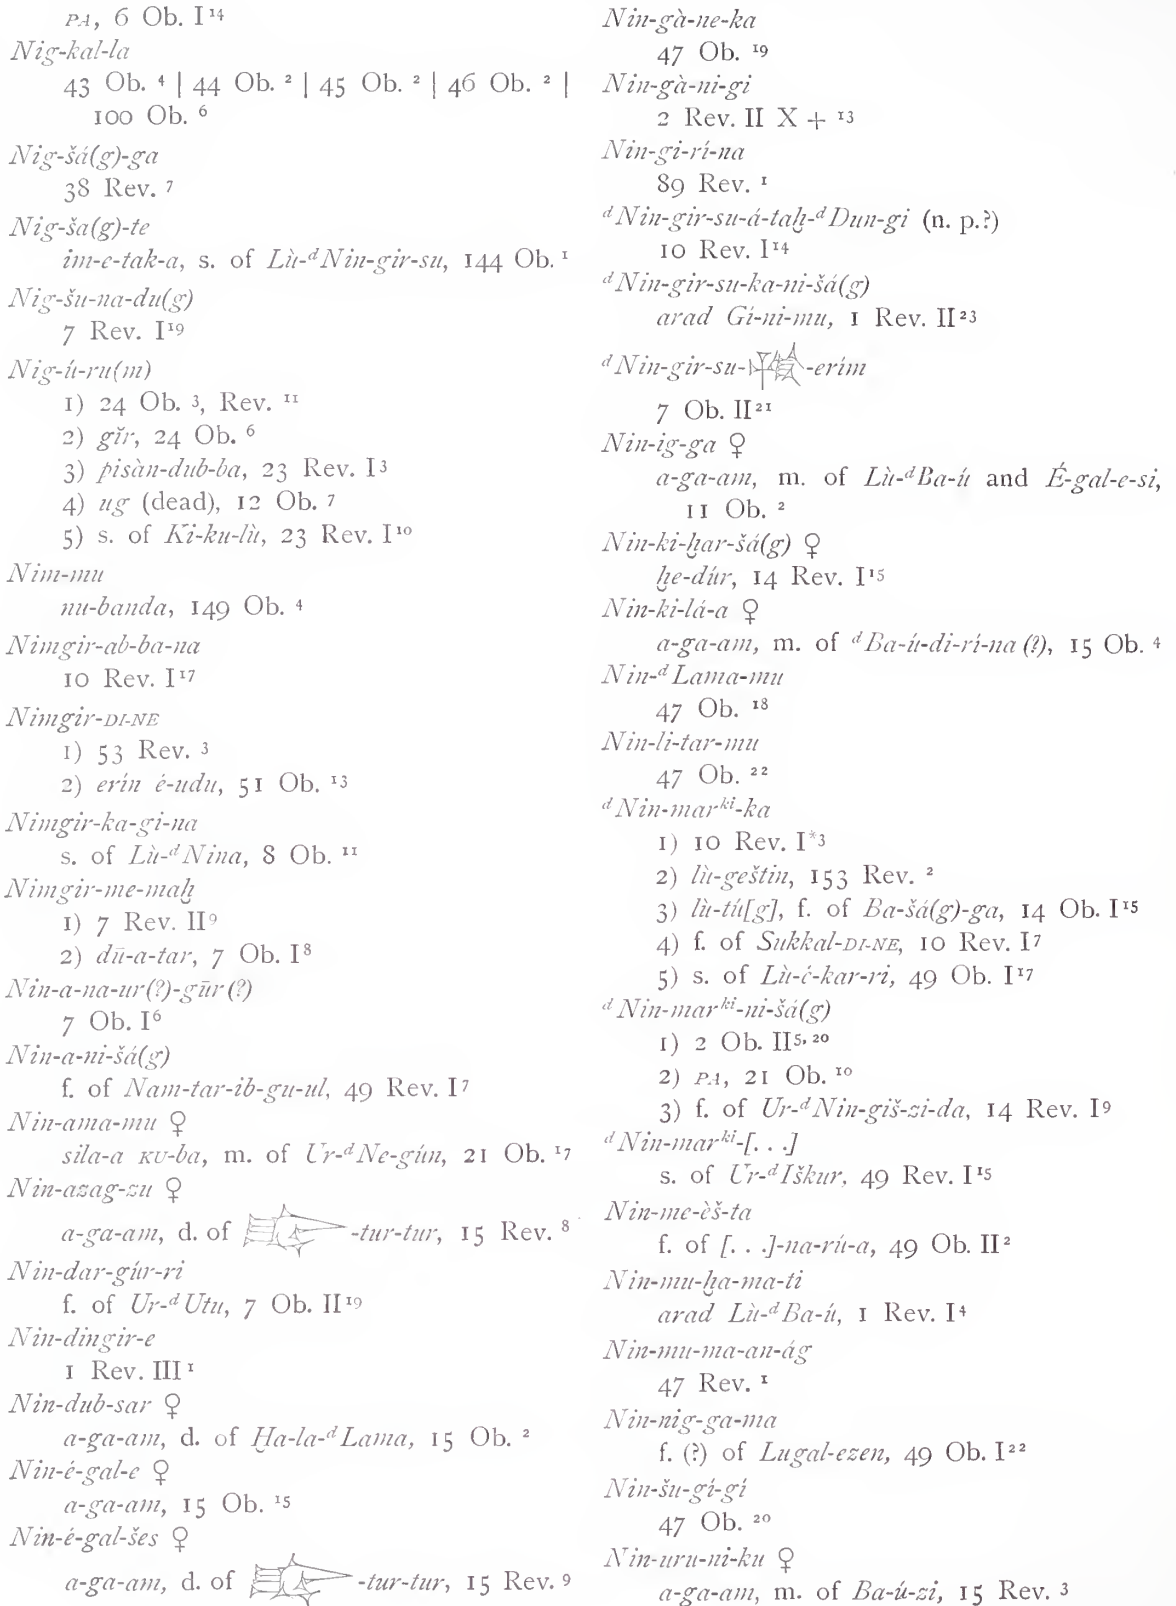 PA, 6 Ob. I 14
Nig-kal-la
43 Ob. 4 | 44 Ob. 2 | 45 Ob. 2 | 46 Ob. 2 |
100 Ob. 6
Nig-šá(g)-ga
38 Rev. 7
Nig-ša(g)-te
im-e-tak-a, s. of Lù-dNin-gir-su, 144 Ob. 1
Nig-šu-na-du(g)
7 Rev. I 19
Nig-ú-ru(m)
1) 24 Ob. 3, Rev. 11
2) gĭr, 24 Ob. 6
3) pisàn-dub-ba, 23 Rev. I 3
4) ug (dead), 12 Ob. 7
5) s. of Ki-ku-lù, 23 Rev. I 10
Nim-mu
nu-banda, 149 Ob. 4
Nimgir-ab-ba-na
10 Rev. I 17
Nimgir-DI-NE
1) 53 Rev. 3
2) erín é-udu, 51 Ob. 13
Nimgir-ka-gi-na
s. of Lù-dNina, 8 Ob. 11
Nimgir-me-maḫ
1) 7 Rev. II 9
2) dū-a-tar, 7 Ob. I 8
Nin-a-na-ur(?)-gūr(?)
7 Ob. I 6
Nin-a-ni-šá(g)
f. of Nam-tar-ib-gu-ul, 49 Rev. I 7
Nin-ama-mu ♀
sila-a KU-ba, m. of Ur-dNe-gún, 21 Ob. 17
Nin-azag-zu ♀
a-ga-am, d. of -tur-tur, 15 Rev. 8
Nin-dar-gúr-ri
f. of Ur-dUtu, 7 Ob. II 19
Nin-dingir-e
1 Rev. III 1
Nin-dub-sar ♀
a-ga-am, d. of Ḫa-la-dLama, 15 Ob. 2
Nin-é-gal-e ♀
a-ga-am, 15 Ob. 15
Nin-é-gal-šes ♀
a-ga-am, d. of -tur-tur, 15 Rev. 9
Nin-gà-ne-ka
47 Ob. 19
Nin-gà-ni-gi
2 Rev. II X + 13
Nin-gi-rí-na
89 Rev. 1
dNin-gir-su-á-taḫ-dDun-gi (n. p.?)
10 Rev. I 14
dNin-gir-su-ka-ni-šá(g)
arad Gí-ni-mu, 1 Rev. II 23
dNin-gir-su- -erím
7 Ob. II 21
Nin-ig-ga ♀
a-ga-am, m. of Lù-dBa-ú and É-gal-e-si,
11 Ob. 2
Nin-ki-ḫar-šá(g) ♀
ḫe-dúr, 14 Rev. I 15
Nin-ki-lá-a ♀
a-ga-am, m. of dBa-ú-di-rí-na (?), 15 Ob. 4
Nin-dLama-mu
47 Ob. 18
Nin-li-tar-mu
47 Ob. 22
dNin-marki-ka
1) 10 Rev. I*3
2) lù-geštin, 153 Rev. 2
3) lù-tú[g], f. of Ba-šá(g)-ga, 14 Ob. I 15
4) f. of Sukkal-DI-NE, 10 Rev. I 7
5) s. of Lù-é-kar-ri, 49 Ob. I 17
dNin-marki-ni-šá(g)
1) 2 Ob. II 5, 20
2) PA, 21 Ob. 10
3) f. of Ur-dNin-giš-zi-da, 14 Rev. I 9
dNin-marki-[. . .]
s. of Ur-dIškur, 49 Rev. I 15
Nin-me-èš-ta
f. of [. . .]-na-rú-a, 49 Ob. II 2
Nin-mu-ḫa-ma-ti
arad Lù-dBa-ú, 1 Rev. I 4
Nin-mu-ma-an-ág
47 Rev. 1
Nin-nig-ga-ma
f. (?) of Lugal-ezen, 49 Ob. I 22
Nin-šu-gí-gí
47 Ob. 20
Nin-uru-ni-ku ♀
a-ga-am, m. of Ba-ú-zi, 15 Rev. 3